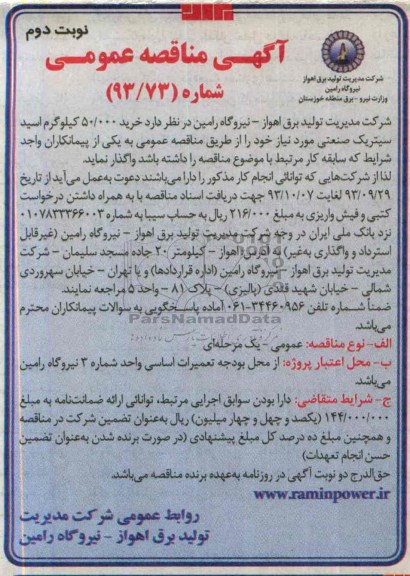 نوبت دوم
آگهـی مناقصه عمومـی
شماره (۹۳/۷۳)
شرکت مدیریت تولید برق اهواز
نیروگاه رامین
وزارت نیرو - برق منطقه خوزستان
شرکت مدیریت تولید برق اهواز – نیروگاه رامین در نظر دارد خرید ۵۰/۰۰۰ کیلوگرم اسید
سیتریک صنعتی مورد نیاز خود را از طریق مناقصه عمومی به یکی از پیمانکاران واجد
شرایط که سابقه کار مرتبط با موضوع مناقصه را داشته باشد واگذار نماید.
لذا از شرکت‌هایی که توانائی انجام کار مذکور را دارا می‌باشند دعوت به‌عمل می‌آید از تاریخ
۹۳/۰۹/۲۹ لغایت ۹۳/۱۰/۰۷ جهت دریافت اسناد مناقصه با به همراه داشتن درخواست
کتبی و فیش واریزی به مبلغ ۲۱۶/۰۰۰ ریال به حساب سیبا به شماره ۰۱۰۷۸۳۳۳۶۶۰۰۳
نزد بانک ملی ایران در وجه شرکت مدیریت تولید برق اهواز – نیروگاه رامین (غیرقابل
استرداد و واگذاری به‌غیر) به آدرس اهواز – کیلومتر ۲۰ جاده مسجد سلیمان – شرکت
مدیریت تولید برق اهواز – نیروگاه رامین (اداره قراردادها) و یا تهران – خیابان سهروردی
شمالی – خیابان شهید قندی (پالیزی) – پلاک ۸۱ – واحد ۵ مراجعه نمایند.
ضمناً شماره تلفن ۳۴۴۶۰۹۵۶-۰۶۱ آماده پاسخگویی به سوالات پیمانکاران محترم
می‌باشد.
الف- نوع مناقصه: عمومی – یک مرحله‌ای
ب- محل اعتبار پروژه: از محل بودجه تعمیرات اساسی واحد شماره ۳ نیروگاه رامین
می‌باشد.
ج- شرایط متقاضی: دارا بودن سوابق اجرایی مرتبط، توانائی ارائه ضمانت‌نامه به مبلغ
۱۴۴/۰۰۰/۰۰۰ (یکصد و چهل و چهار میلیون) ریال به‌عنوان تضمین شرکت در مناقصه
و همچنین مبلغ ده درصد کل مبلغ پیشنهادی (در صورت برنده شدن به‌عنوان تضمین
حسن انجام تعهدات)
حق‌الدرج دو نوبت آگهی در روزنامه به‌عهده برنده مناقصه می‌باشد.
www.raminpower.ir
روابط عمومی شرکت مدیریت
تولید برق اهواز - نیروگاه رامین
ParsNamadData